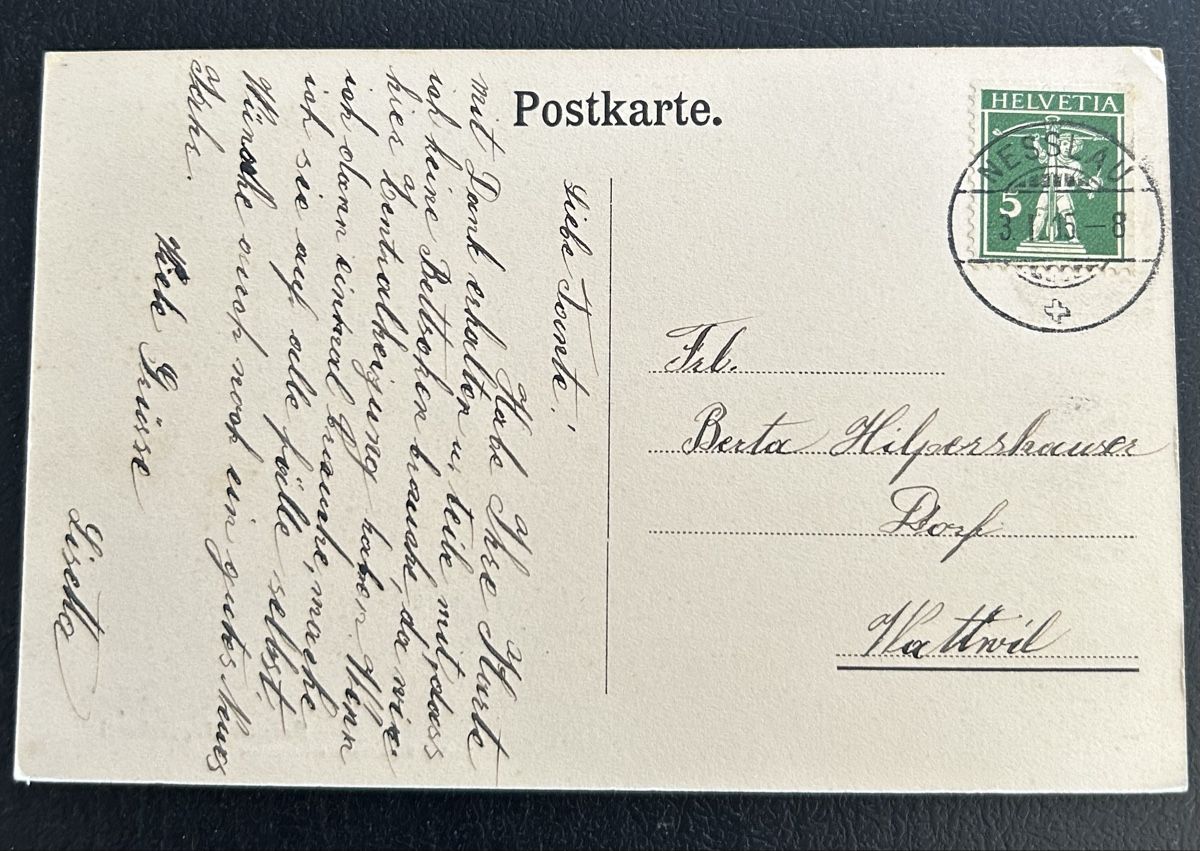 Postkarte.
HELVETIA
5
NESSLAU
3. I. 15 – 8
Frl.
Berta Hilpershauser
Dorf
Wattwil
Liebe Tante!
Habe Ihre Karte
mit Dank erhalten u. teile mit, dass
ich keine Bettsocken brauche, da wir
hier Centralheizung haben. Wenn
ich dann einmal brauche, mache
ich sie auf alle fälle selbst.
Wünsche auch noch ein gutes Neues
Jahr.
Viele Grüsse
Lisetta